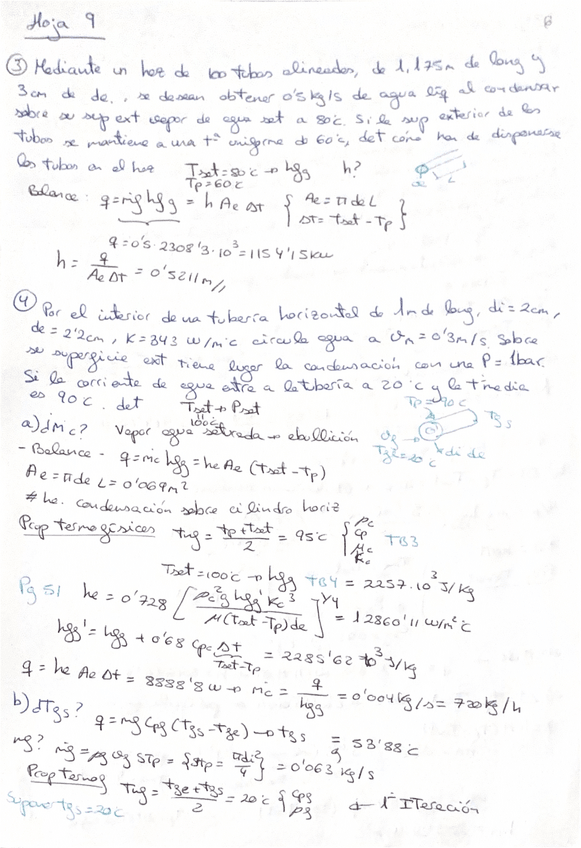 Hoja 9
③ Mediante un haz de 100 tubos alineados, de 1,175m de long y
3cm de de., se desean obtener 0'5 kg/s de agua liq al condensar
sobre su sup ext vapor de agua sat a 80ºc. Si la sup exterior de los
tubos se mantiene a una tª uniforme de 60ºc, det cómo han de disponerse
los tubos en el haz
Tsat = 80ºc → hfg h?
Tp = 60ºc
L
Balance: q = ṁg hfg = h Ae ΔT { Ae = π de L
ΔT = Tsat - Tp }
q = 0'5 · 2308'3 · 10³ = 1154'15 kw
h = q / Ae ΔT = 0'5211 m//
④ Por el interior de una tubería horizontal de 1m de long, di = 2cm,
de = 2'2cm, K = 343 w/mºc circula agua a vm = 0'3 m/s. Sobre
su superficie ext tiene lugar la condensación con una P = 1bar.
Si la corriente de agua entra a la tubería a 20ºc y la tª media
es 90ºc. det
Tsat → Psat
100ºc
Tp = 90ºc
a) ¿ṁc? Vapor agua saturada → ebullición
di de
- Balance - q = ṁc hfg = he Ae (Tsat - Tp)
Ae = π de L = 0'069 m²
# he. condensación sobre cilindro horiz
Prop termofísicas tmf = tp + tsat / 2 = 95ºc { ρc cp μc Kc TB3
Tsat = 100ºc → hfg TB4 = 2257·10³ J/kg
Pg 51 he = 0'728 [ ρc² g hfg' Kc³ / μ (Tsat - Tp) de ]^1/4 = 12860'11 w/m²ºc
hfg' = hfg + 0'68 cpc ΔT = 2285'62 · 10³ J/kg
Tsat - Tp
q = he Ae ΔT = 8888'8 w → ṁc = q / hfg = 0'004 kg/s =
b) ¿Tfs? q = ṁf cpf (tfs - tfe) → tfs = 53'88ºc
ṁf? ṁf = ρf vf STP = { STP = π di² / 4 } = 0'063 kg/s
Prop termof tmf = tfe + tfs / 2 = 20ºc { cpf ρf ← 1ª ITeración
Supone tfs = 20ºc